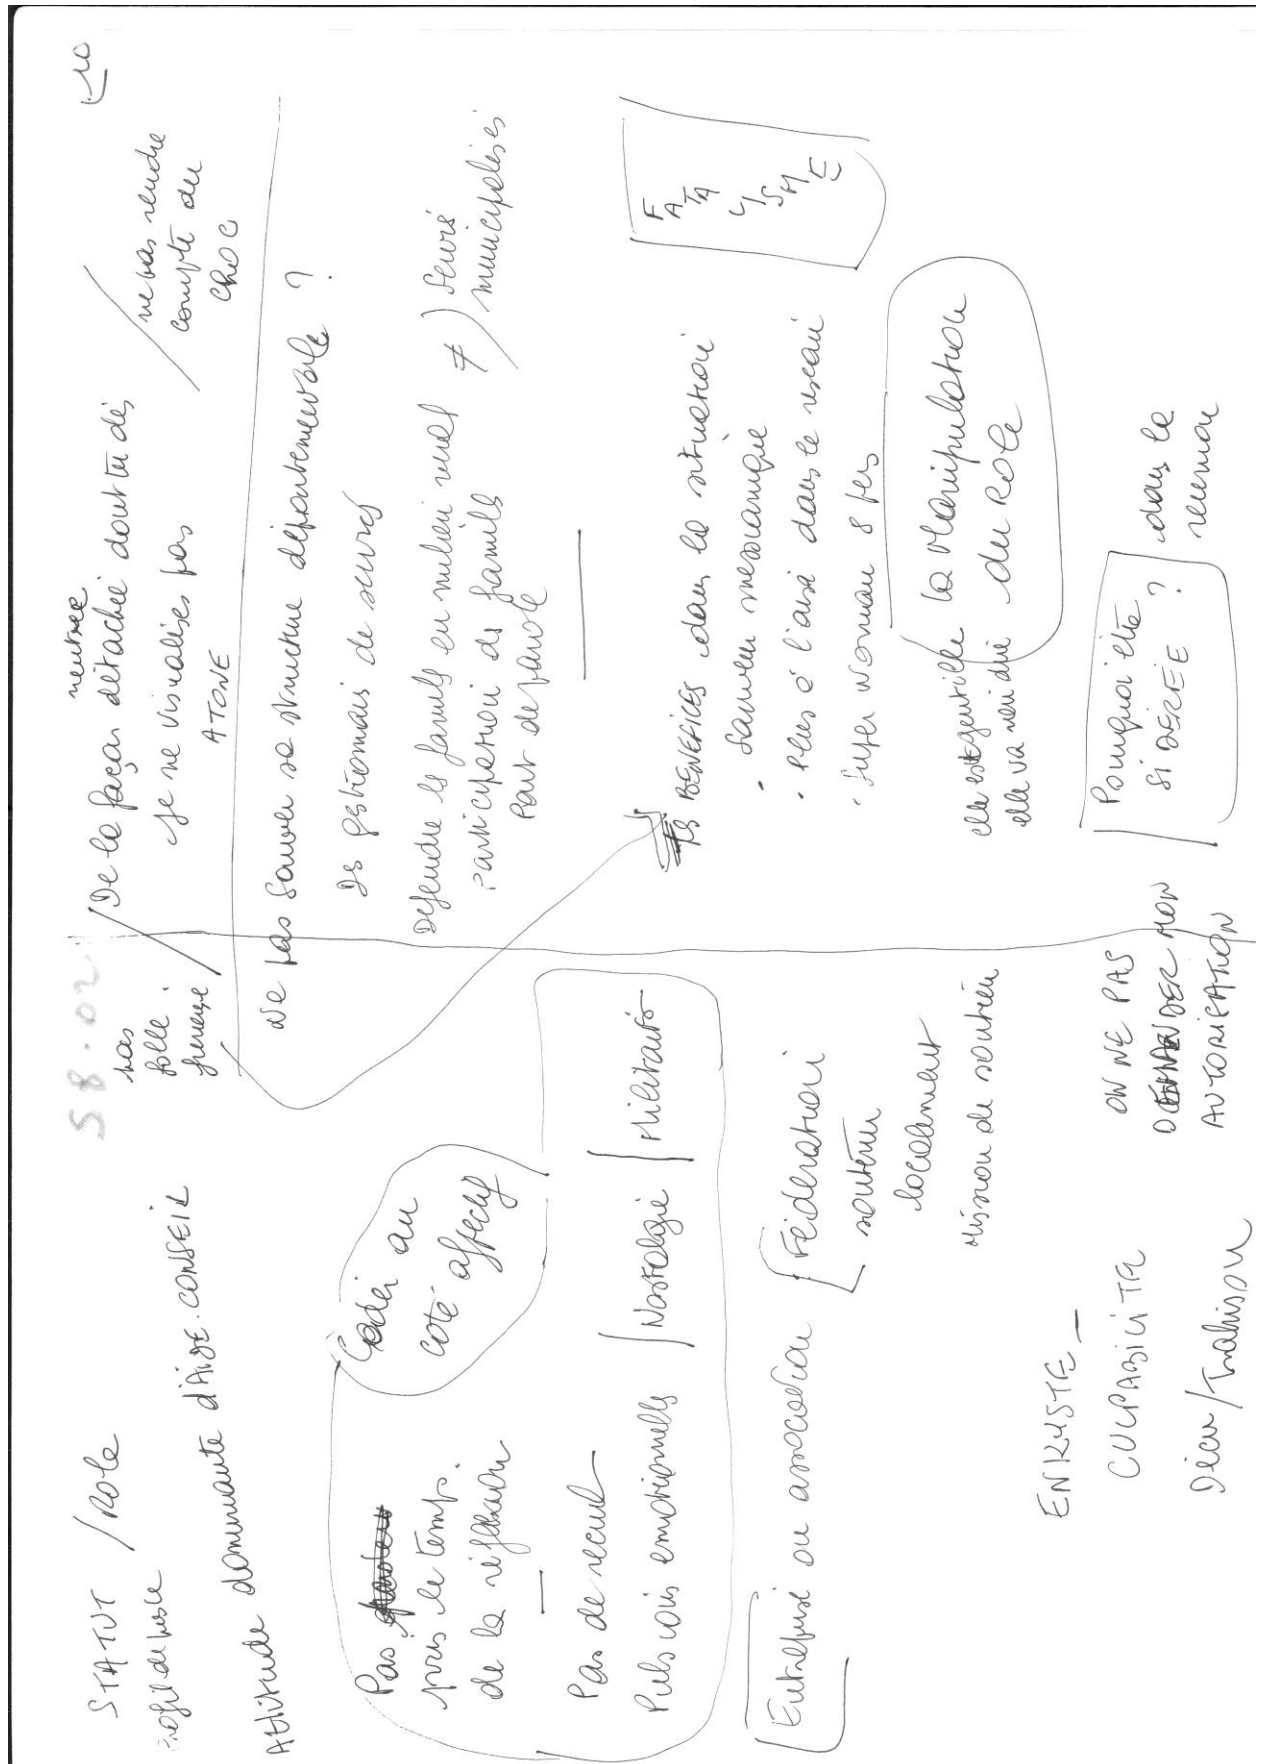 10
58.02
STATUT / Role
Profil de poste
Attitude dominante d'AIDE.CONSEIL
Pas
pris le temps.
de la réflexion
Céder au
coté affectif
Pas de recul
Pulsions émotionnelles
/ Nostalgie / Militants
Entreprise ou association
Fédération
soutenir
localement
Mission de soutien
ENKYSTE -
CULPABILITE
Décu / Trahison
ON NE PAS
DEMANDER MON
AUTORISATION
pas
folle
furieuse
neutre
/ De la façon détachée dont tu dis
je ne visualises pas
ATONE
/ ne pas rendre
compte du
choc
Ne pas Sauver sa structure départementale ?
Des gestionnais de services
Défendre les familles en milieu rural ≠
participation des familles
Part de parole
) Servis
municipalisés
BENEFICES dans la situation
Sauveur messianique
• Plus à l'aise dans le réseau
• Super woman 8 pers
FATALISME
elle est gentille
elle va rien dire
la Manipulation
du Role
Pourquoi être
si DEÇEE ?
dans la
reunion